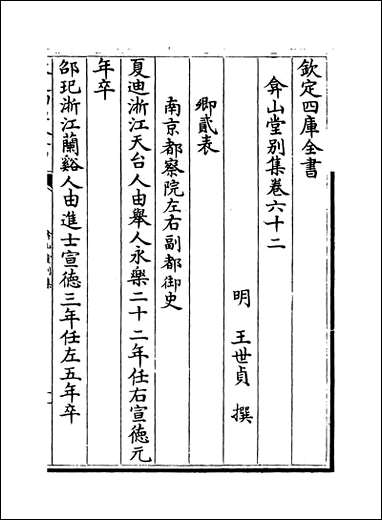 欽定四庫全書
弇山堂別集卷六十二
明 王世貞 撰
卿貳表
南京都察院左右副都御史
夏迪浙江天台人由舉人永樂二十二年任右宣德元
年卒
邵玘浙江蘭谿人由進士宣德三年任左五年卒